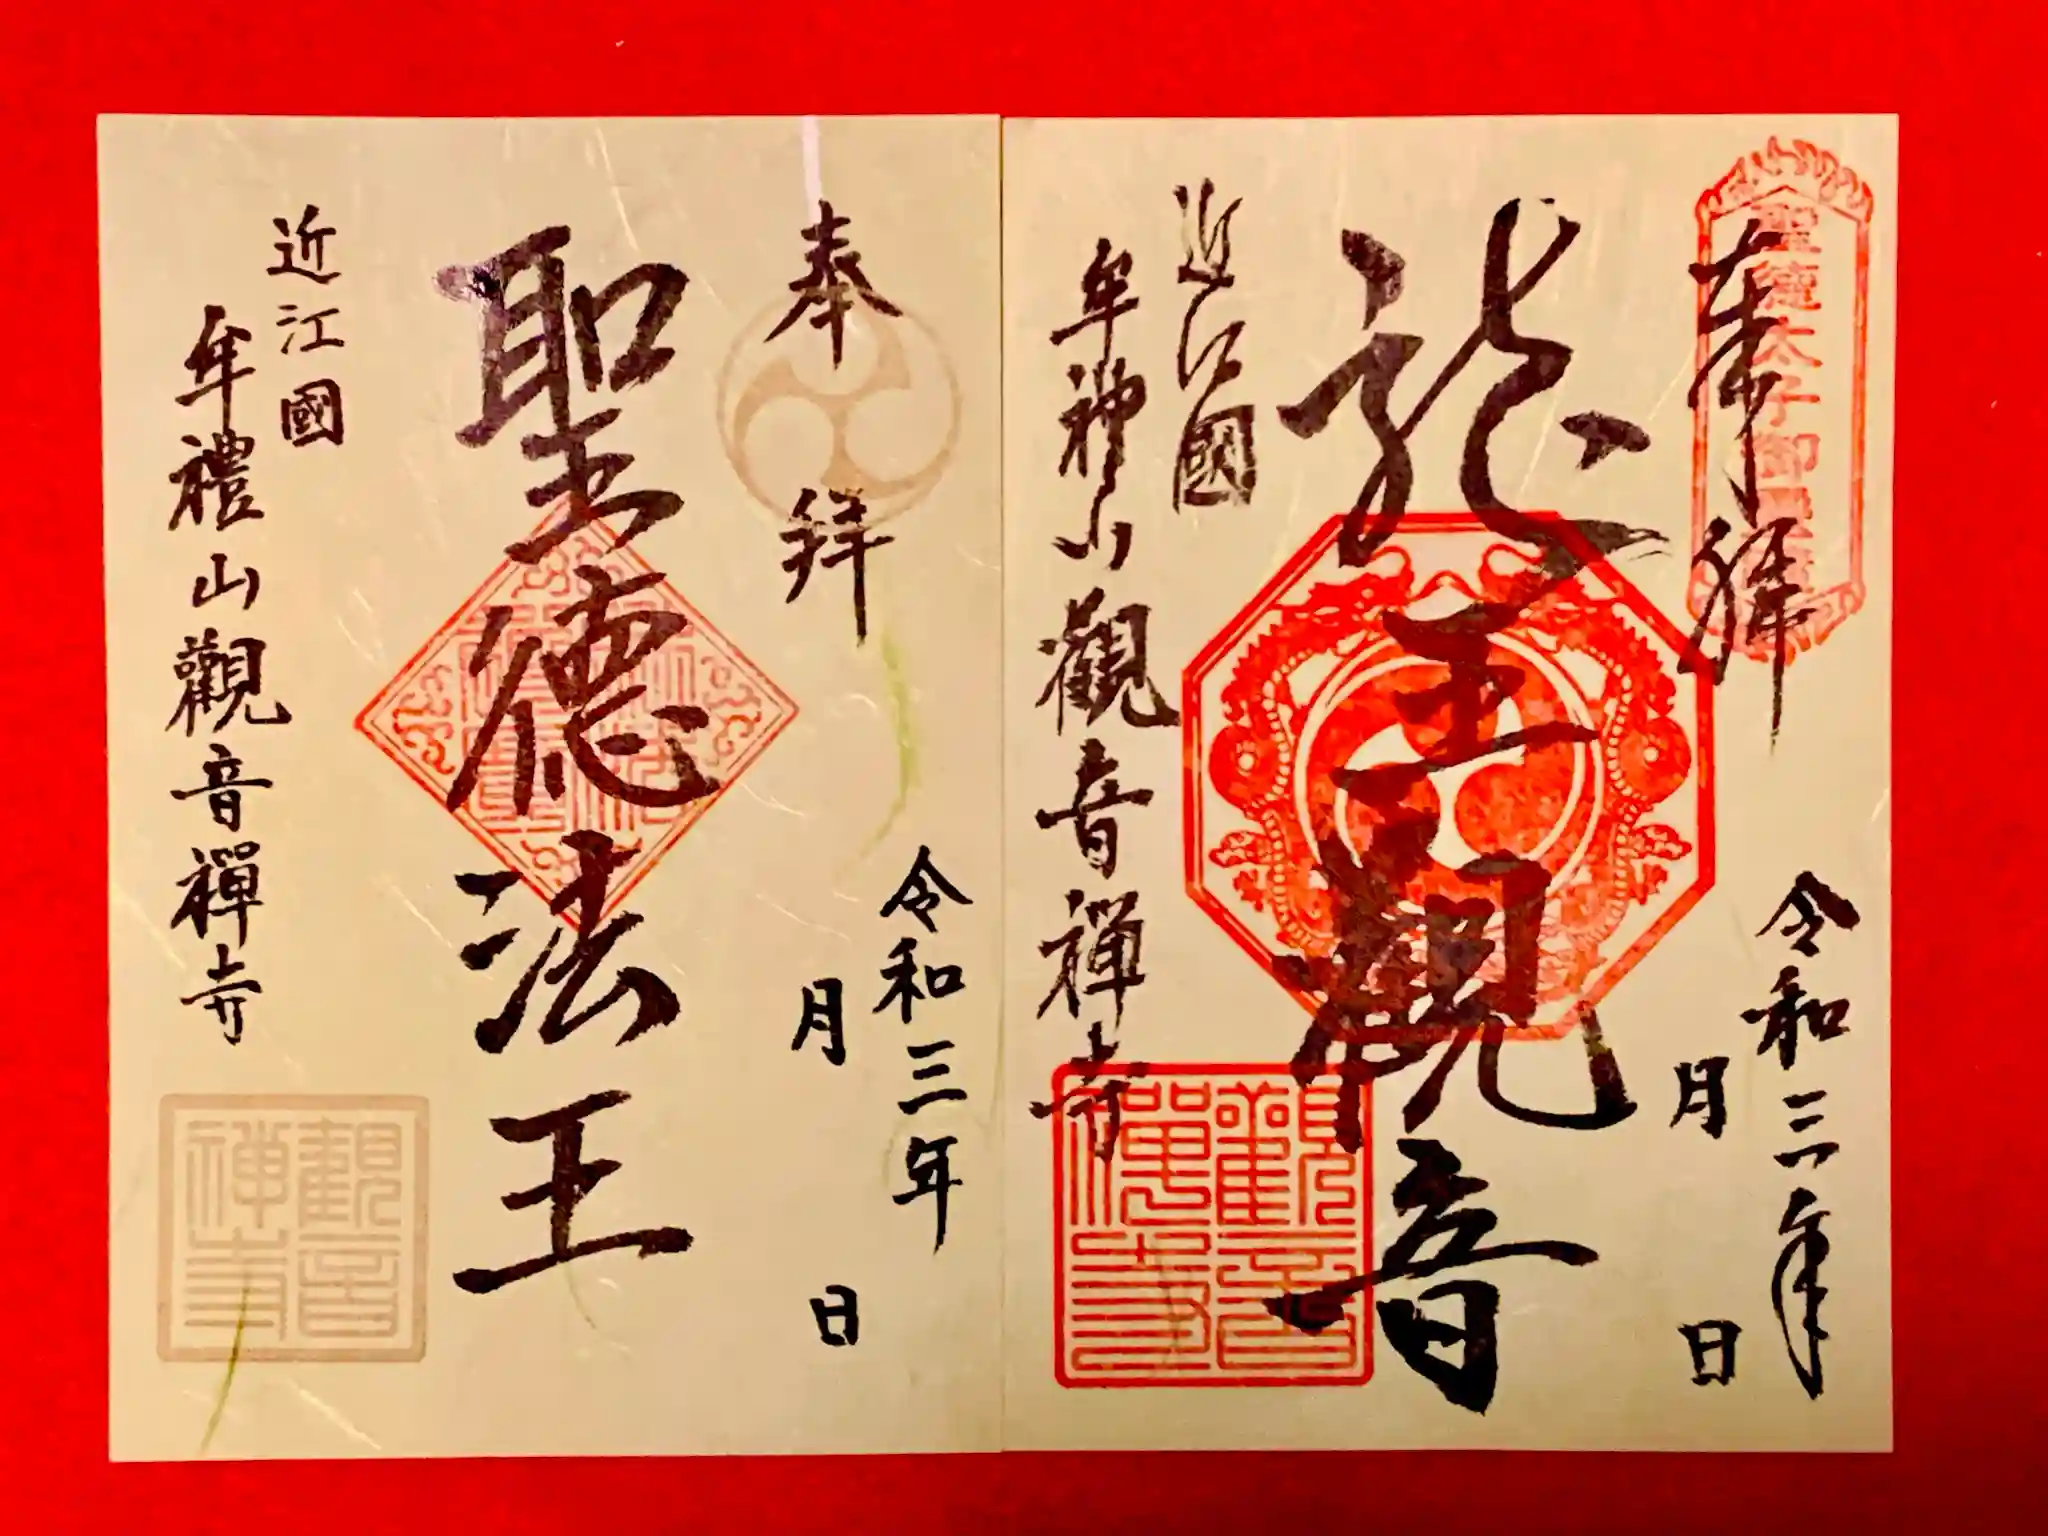 奉拝
聖徳太子御霊蹟
令和三年
月　日
龍王観音
近江國
牟禮山觀音禅寺
觀音禅寺
奉拜
令和三年
月　日
聖徳法王
近江國
牟禮山觀音禪寺
觀音禅寺